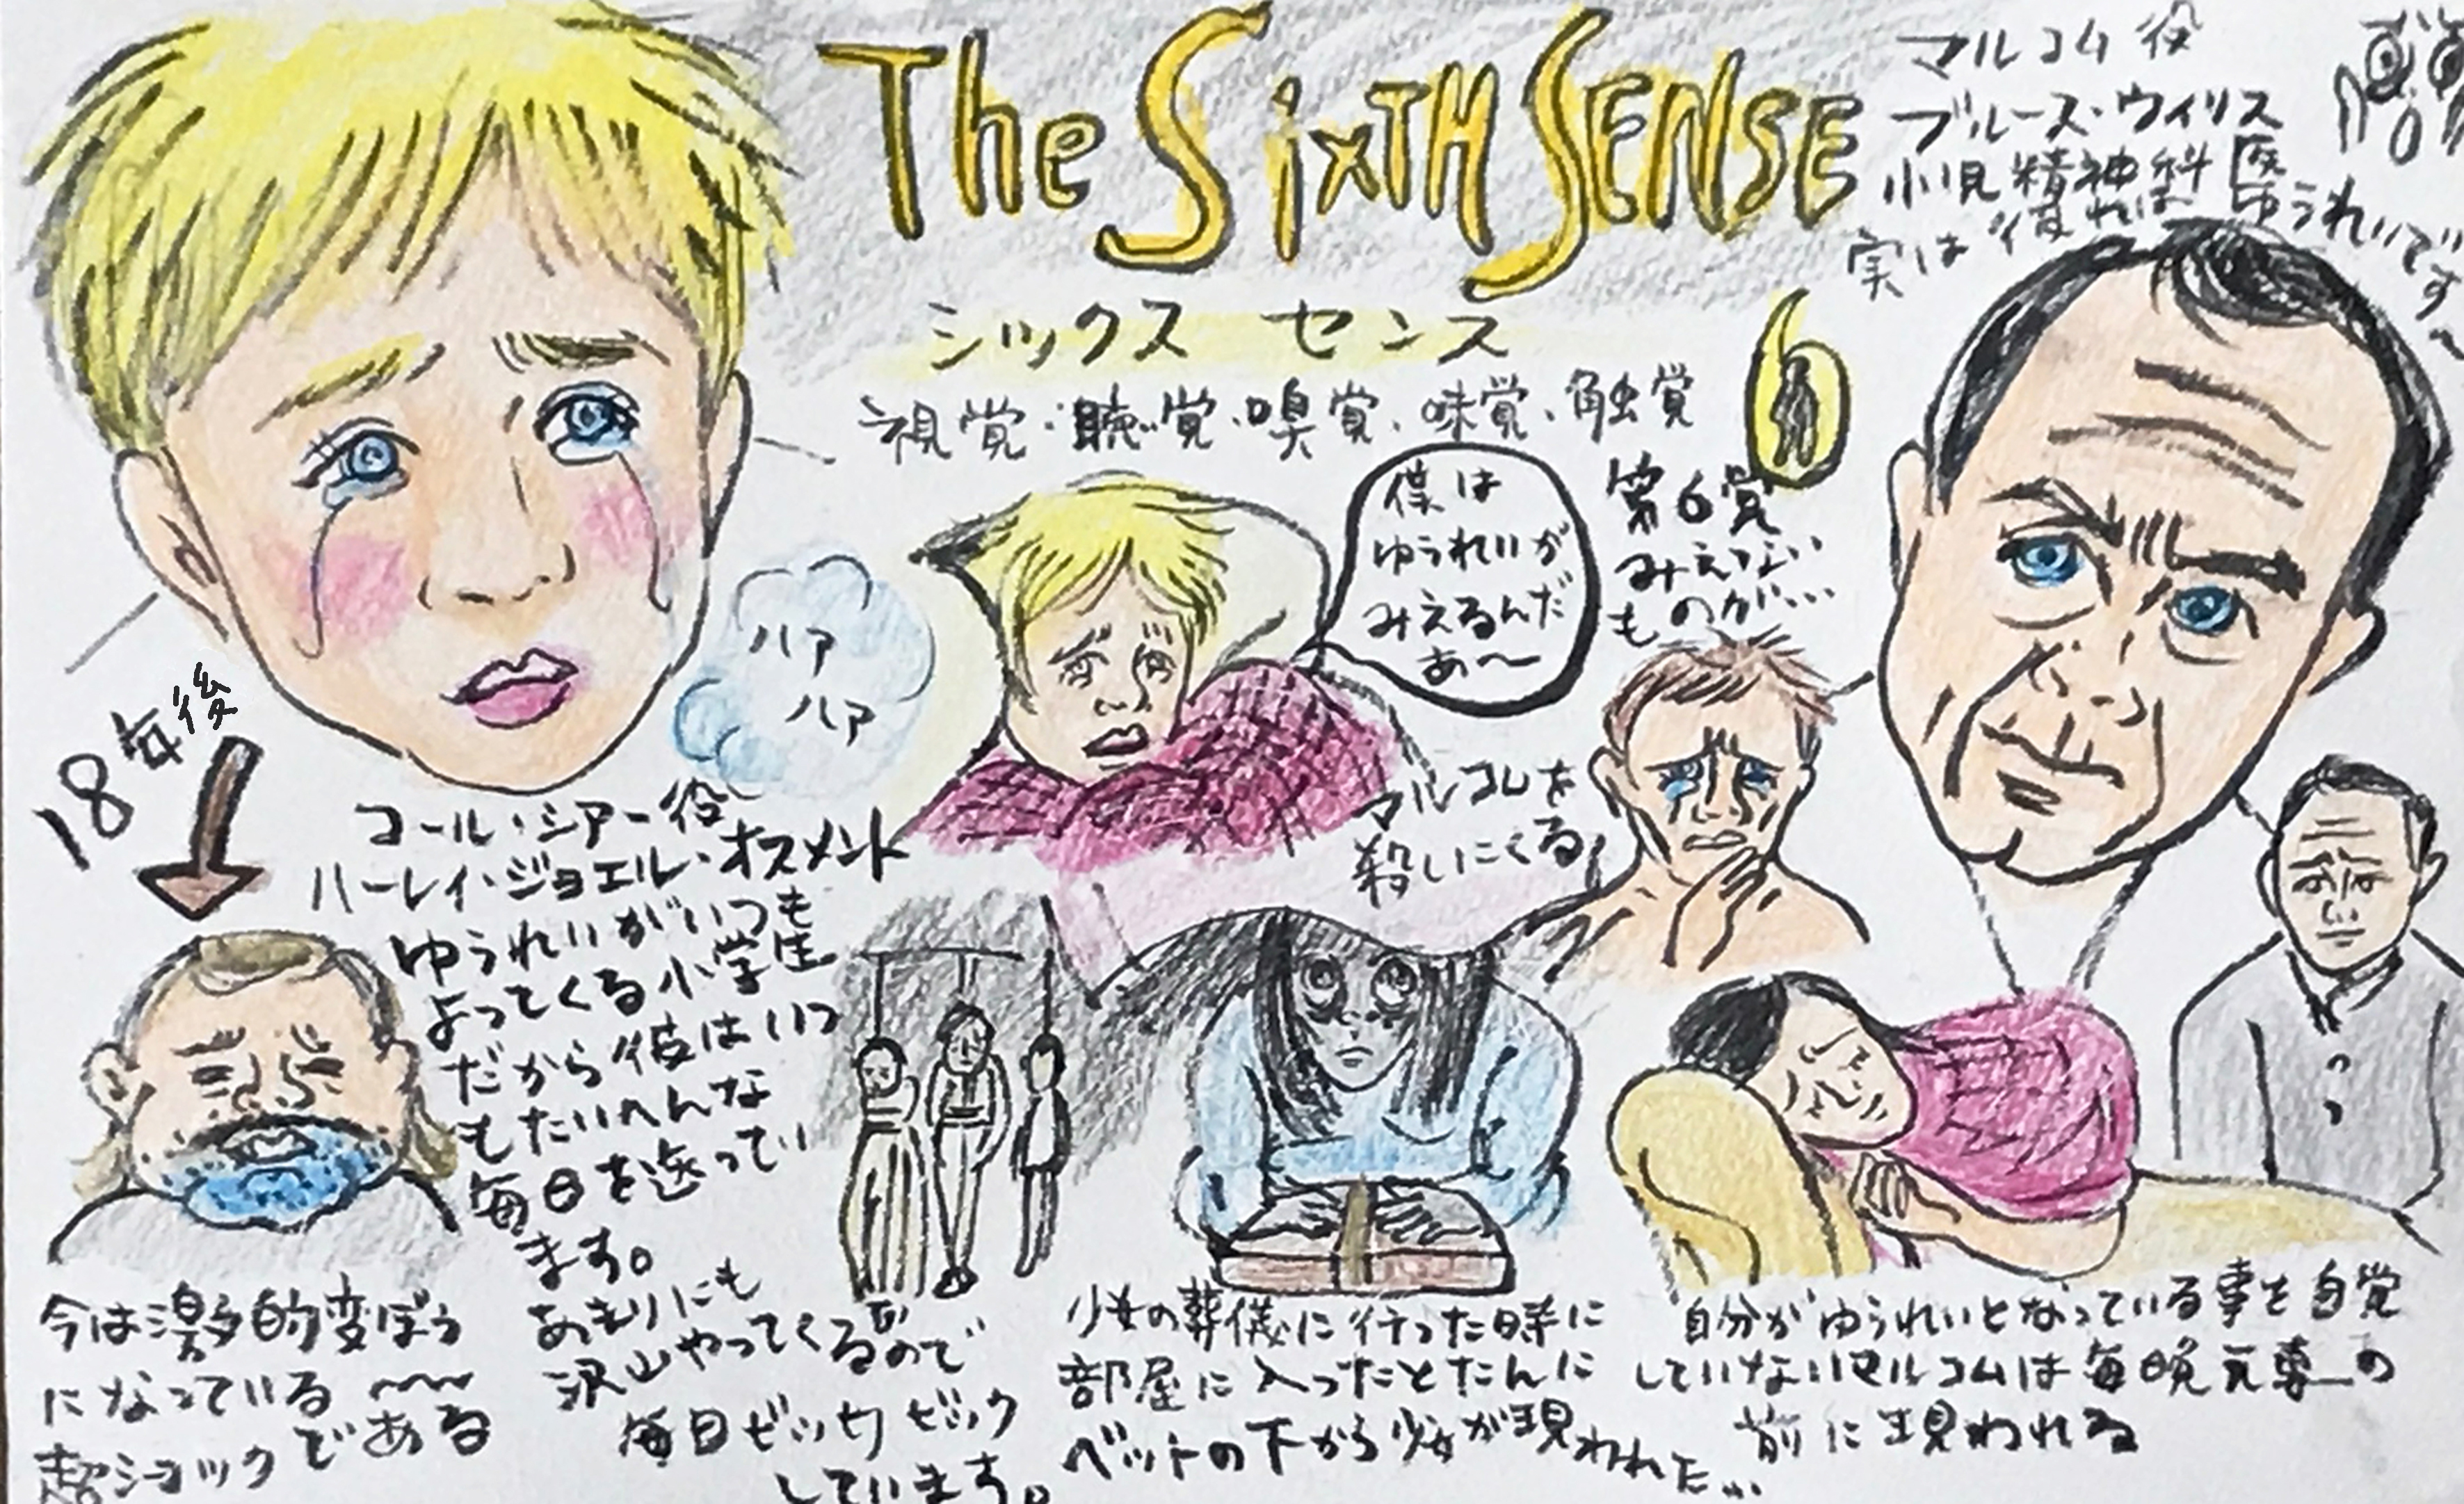 The SixTH SENSE
シックス センス
視覚・聴覚・嗅覚、味覚、触覚
6
第6覚
みえない
ものが…
マルコム 役
ブルース・ウィリス
小児精神科医
実は彼れはゆうれいです〜
僕は
ゆうれいが
みえるんだ
あ〜
ハア
ハア
マルコムを
殺しにくる
18年後
コール・シアー役
ハーレイ・ジョエル・オスメント
ゆうれいがいつも
よってくる小学生
だから彼はいつ
もたいへんな
毎日を送ってい
ます。
あまりにも
沢山やってくるので
毎日ビックビック
しています。
今は激的変ぼう
になっている〜
超ショックである
少女の葬儀に行った時に
部屋に入ったとたんに
ベットの下から少女が現われた…
自分がゆうれいとなっている事を自覚
していないマルコムは毎晩元妻の
前に現われる